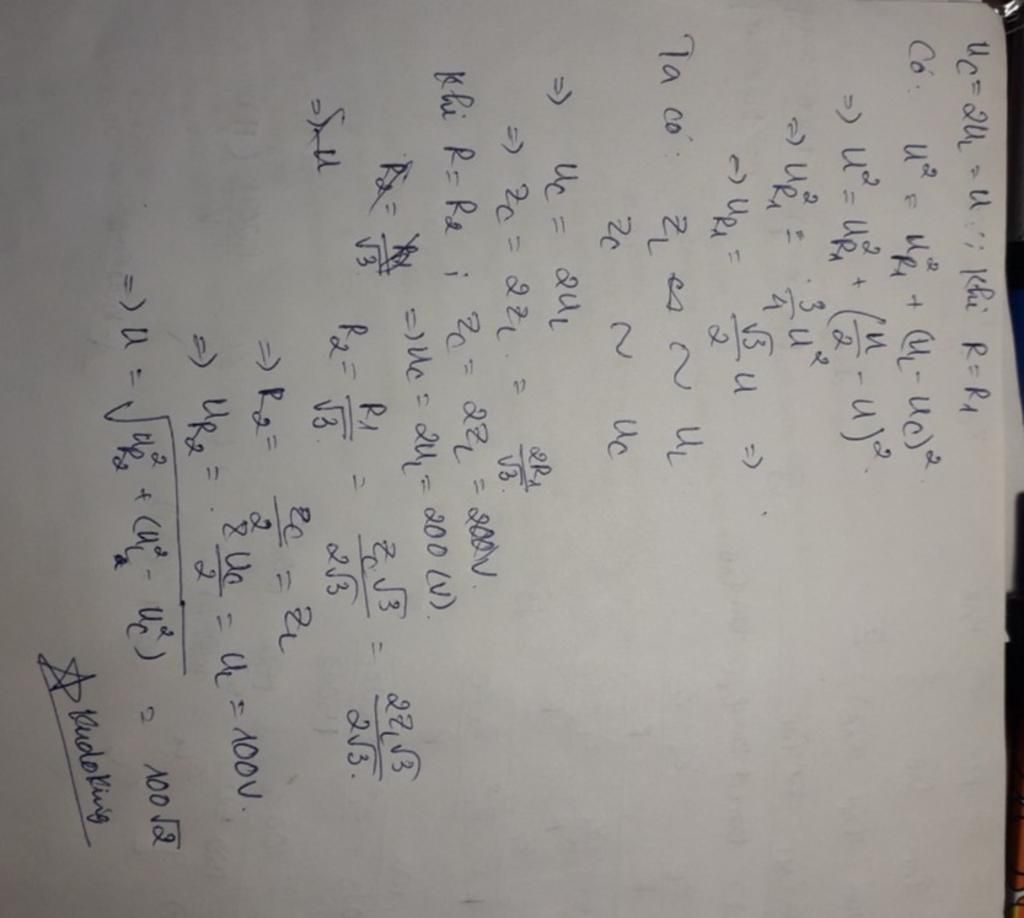 U_C = 2U_L = U khi R = R_1
Có: U^2 = U_{R1}^2 + (U_L - U_C)^2
=> U^2 = U_{R1}^2 + (U/2 - U)^2
=> U_{R1}^2 = 3/4 U^2
=> U_{R1} = √3/2 U =>
Ta có: Z_L ~ U_L
Z_C ~ U_C
=> U_C = 2U_L
=> Z_C = 2Z_L = 2R_1/√3.
Khi R = R_2 ; Z_C = 2Z_L
=> U_C = 2U_L = 200 (V).
R_2 = R_1/√3 = Z_C√3/2√3 = 2Z_L√3/2√3.
=> U
=> R_2 = Z_C/2 = Z_L
=> U_{R2} = U_C/2 = U_L = 100V.
=> U = √(U_{R2}^2 + (U_L^2 - U_C^2) = 100√2
☆ KudoKing